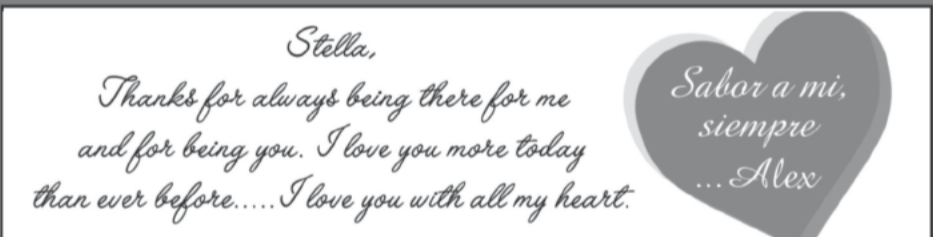 Stella,
Thanks for always being there for me
and for being you. I love you more today
than ever before.....I love you with all my heart.
Sabor a mi,
siempre
...Alex